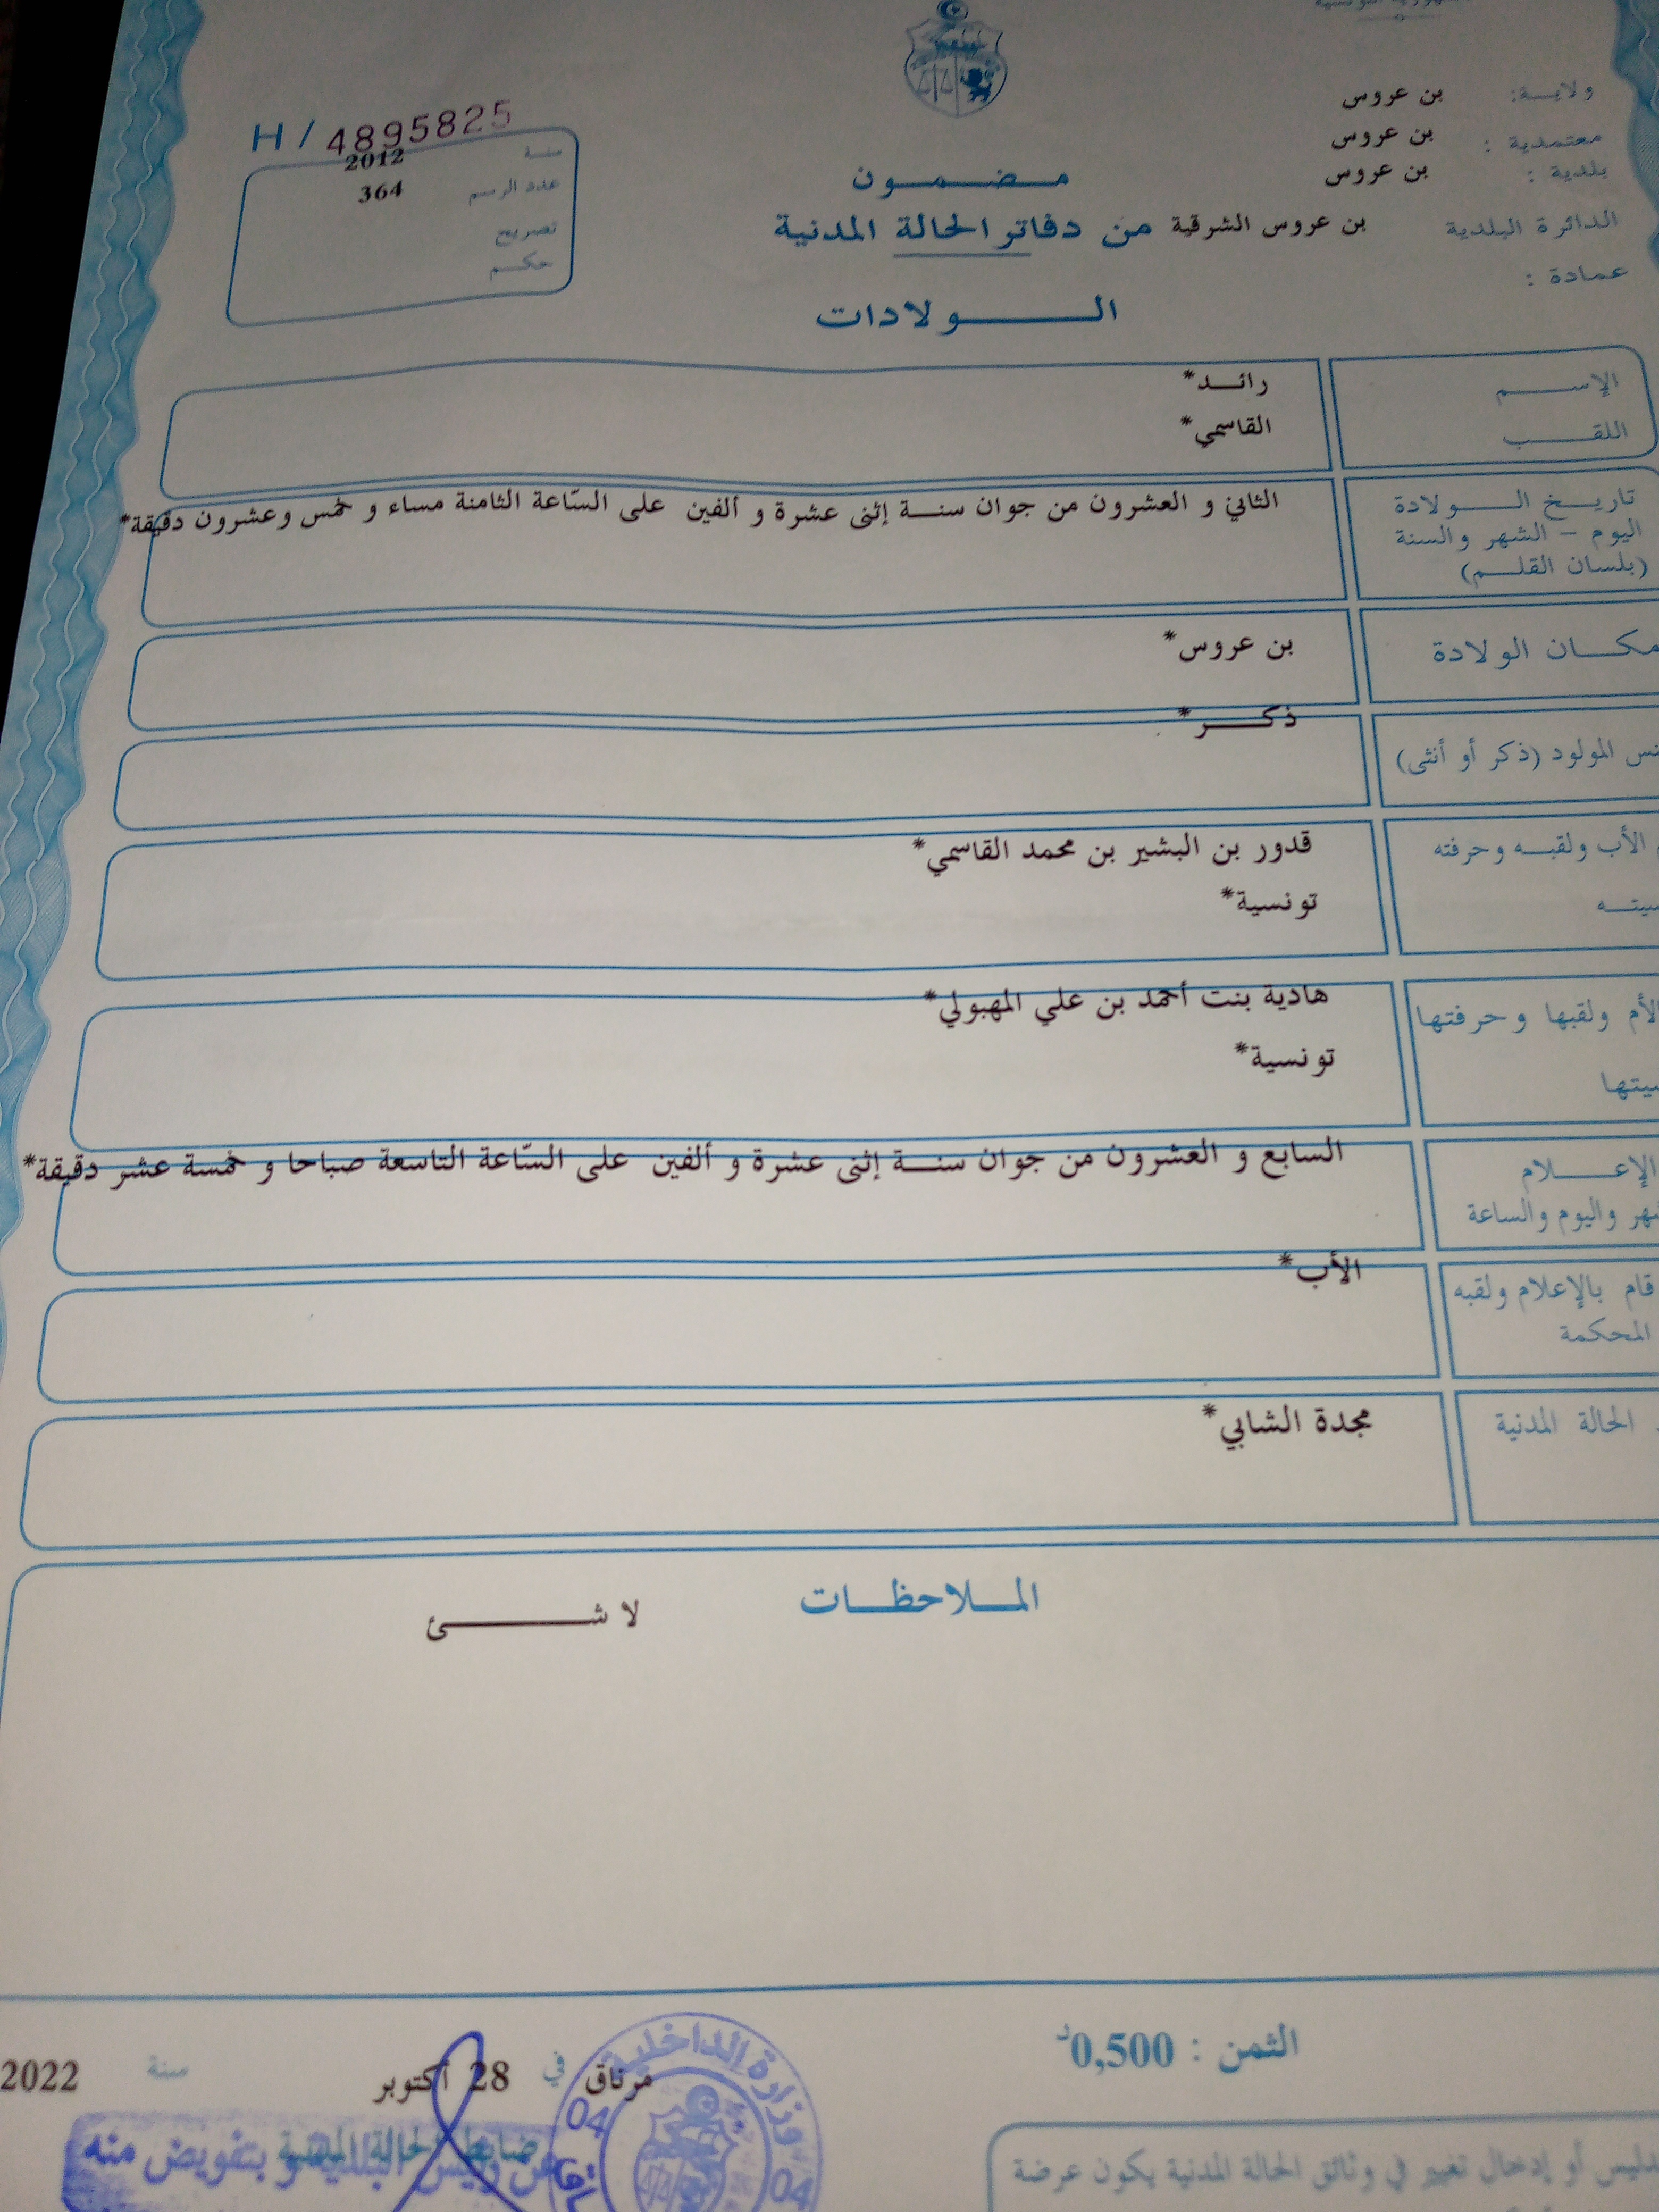 ولاية: بن عروس
معتمدية : بن عروس
بلدية : بن عروس
الدائرة البلدية بن عروس الشرقية
عمادة :
H / 4895825
سنة 2012
عدد الرسم 364
تصريح
حكم
مضمون
من دفاتر الحالة المدنية
الولادات
الإسم رائد*
اللقب القاسمي*
تاريخ الولادة الثاني و العشرون من جوان سنة إثنى عشرة و ألفين على السّاعة الثامنة مساء و خمس وعشرون دقيقة*
اليوم - الشهر والسنة
(بلسان القلم)
مكان الولادة بن عروس*
ذكر*
المولود (ذكر أو أنثى)
الأب ولقبه وحرفته قدور بن البشير بن محمد القاسمي*
تونسية*
الأم ولقبها وحرفتها هادية بنت أحمد بن علي المهبولي*
تونسية*
الإعلام السابع و العشرون من جوان سنة إثنى عشرة و ألفين على السّاعة التاسعة صباحا و خمسة عشر دقيقة*
واليوم والساعة
الأب*
قام بالإعلام ولقبه
المحكمة
الحالة المدنية مجدة الشابي*
الملاحظات
لا شئ
الثمن : 0,500د
مرناق في 28 أكتوبر سنة 2022
وزارة الداخلية
04
04
ضابط الحالة المدنية
عن رئيس البلدية و بتفويض منه
أو إدخال تغيير في وثائق الحالة المدنية يكون عرضة